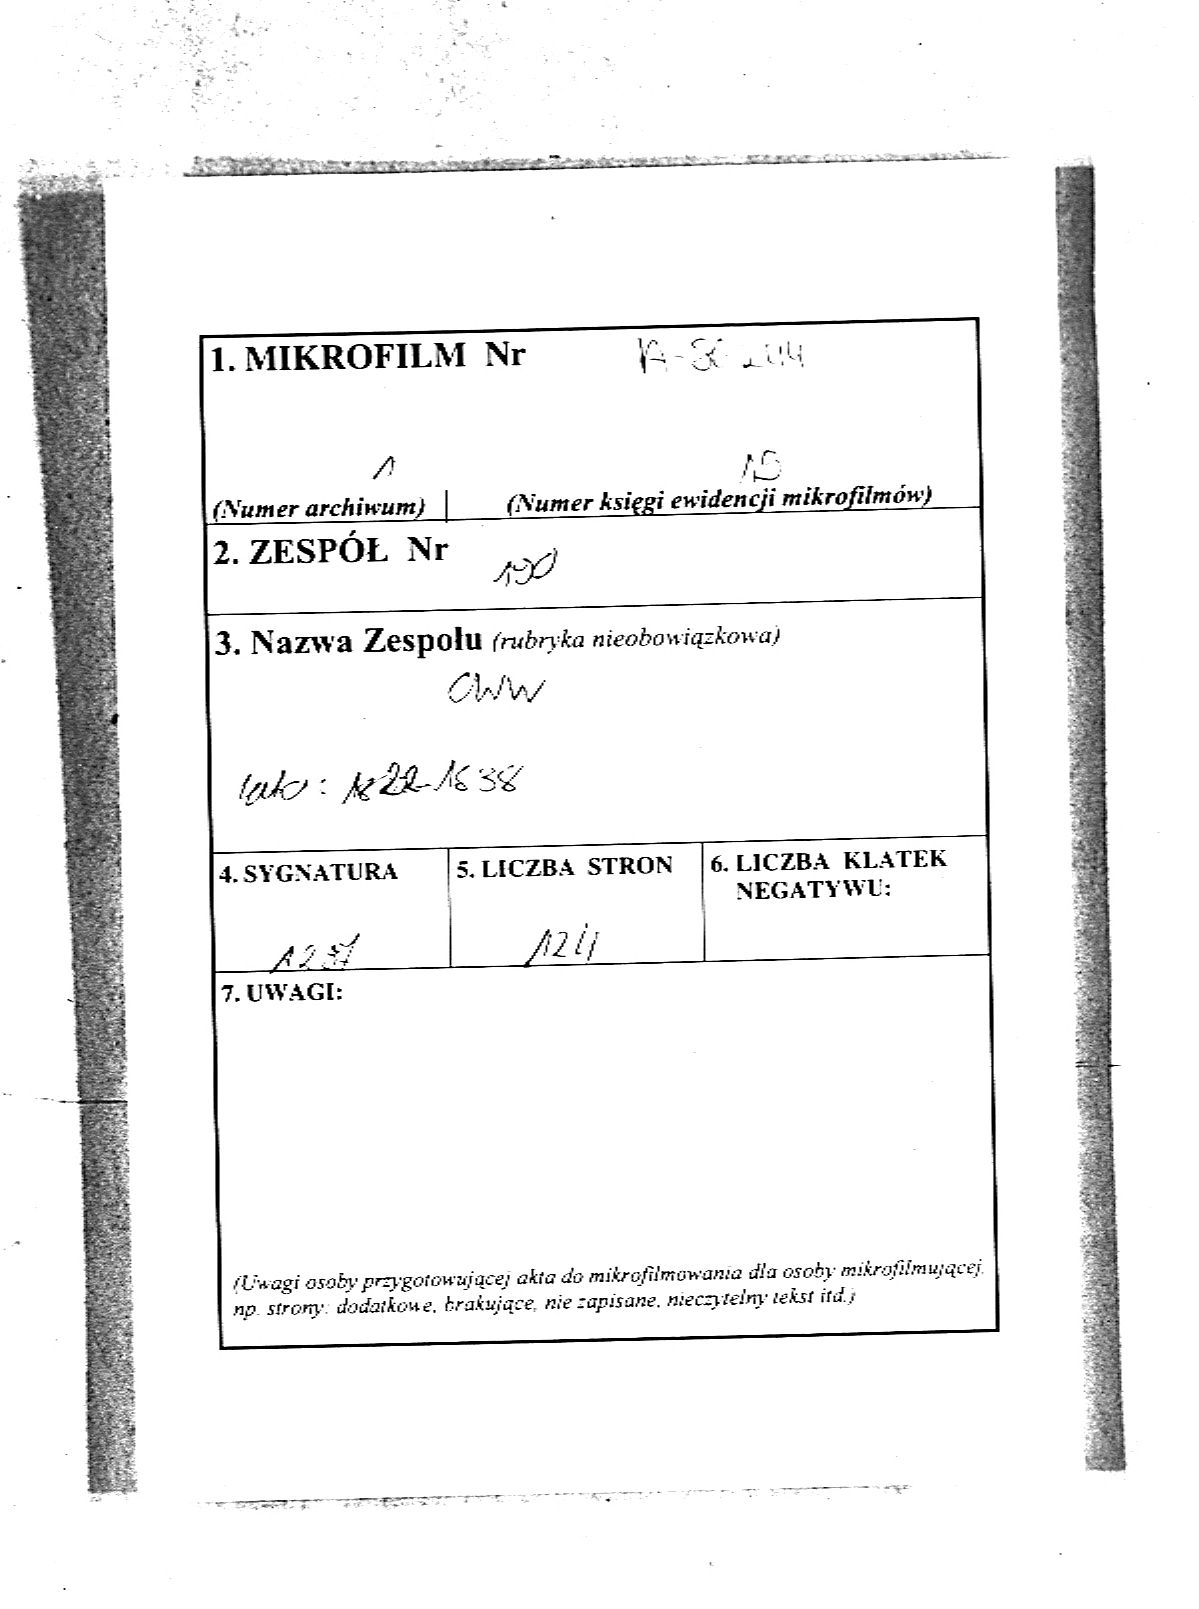 1. MIKROFILM Nr
1 19
(Numer archiwum) (Numer księgi ewidencji mikrofilmów)
2. ZESPÓŁ Nr 190
3. Nazwa Zespołu (rubryka nieobowiązkowa)
CWW
lata: 1822-1838
4. SYGNATURA 5. LICZBA STRON 6. LICZBA KLATEK
NEGATYWU:
124
7. UWAGI:
(Uwagi osoby przygotowującej akta do mikrofilmowania dla osoby mikrofilmującej,
np. strony: dodatkowe, brakujące, nie zapisane, nieczytelny tekst itd.)